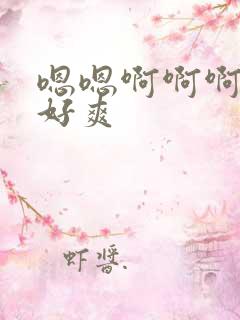 嗯嗯啊啊啊
好爽
虾酱.